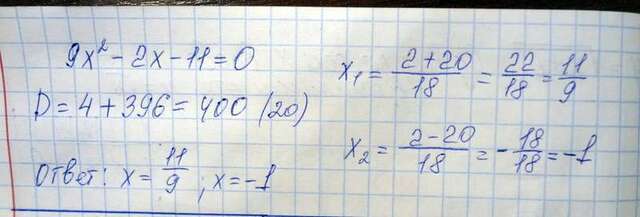 9x² - 2x - 11 = 0
D = 4 + 396 = 400 (20)
Ответ: x = 11/9 ; x = -1
x₁ = (2+20)/18 = 22/18 = 11/9
x₂ = (2-20)/18 = -18/18 = -1